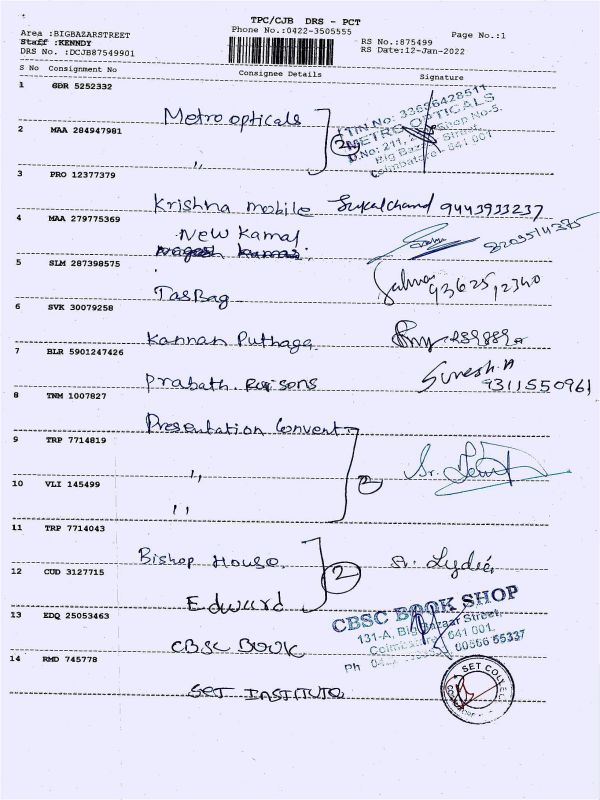 TPC/CJB DRS - PCT
Area :BIGBAZARSTREET
Phone No.:0422-3505555
Page No.:1
Staff :KENNDY
RS No.:875499
DRS No. :DCJB87549901
RS Date:12-Jan-2022
S No Consignment No
Consignee Details
Signature
1 GDR 5252332
Metro opticals
TIN No: 33656428511
METRO OPTICALS
Shop No-5,
D.No: 211,
Big Bazaar Street,
Coimbatore - 641 001
2 MAA 284947981
2
,,
3 PRO 12377379
Krishna mobile 9443933237
4 MAA 279775369
New Kamal
5 SLM 287398575
Salma
93625,12340
TasBag
6 SVK 30079258
Kannan Puthaga
7 BLR 5901247426
Suresh.A
9311550961
Prabath
8 TNM 1007827
Presentation Convent
9 TRP 7714819
,,
2
Sr.
10 VLI 145499
,,
11 TRP 7714043
Bishop House.
2
Sr. Lydia
12 CUD 3127715
Edward
13 EDQ 25053463
CBSC BOOK SHOP
131-A, Big Bazaar Street,
Coimbatore 641 001.
Ph 55337
CBSC BOOK
14 RMD 745778
SET INSTITUTE
SET